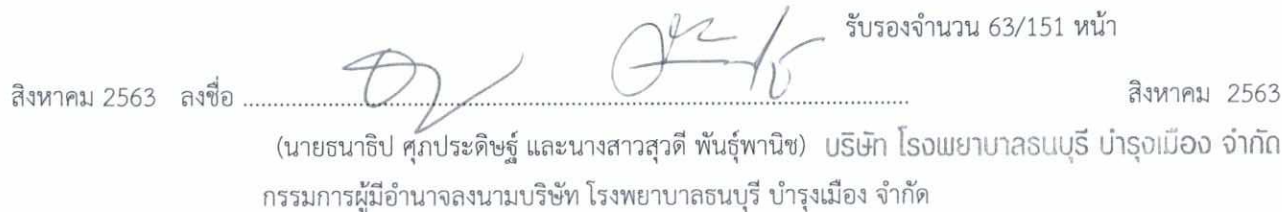 รับรองจำนวน 63/151 หน้า
สิงหาคม 2563 ลงชื่อ ........................................................................ สิงหาคม 2563
(นายธนาธิป ศุภประดิษฐ์ และนางสาวสุวดี พันธุ์พานิช) บริษัท โรงพยาบาลธนบุรี บำรุงเมือง จำกัด
กรรมการผู้มีอำนาจลงนามบริษัท โรงพยาบาลธนบุรี บำรุงเมือง จำกัด